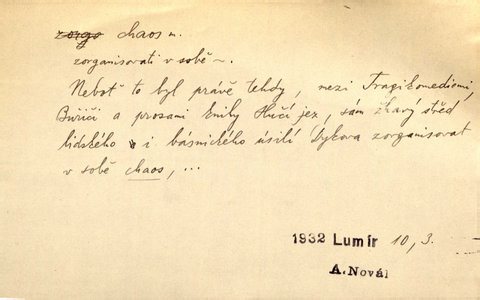 zorgo chaos m.
zorganisovati v sobě ~.
Neboť to byl právě tehdy, mezi Tragikomediemi,
Buřiči a prozami knihy Hučí jez, sám žhavý střed
lidského i básnického úsilí Dykova zorganisovat
v sobě chaos, ...
1932 Lumír 10, 3.
A. Novák